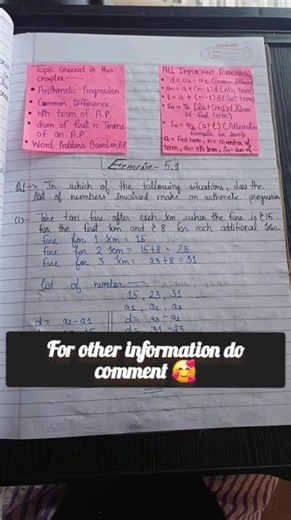 Topic covered in this
chapter
• Arithmetic Progression
• Common Difference
• nth term of A.P.
• Sum of first n Terms
of an A.P.
• Word Problems Based on AP
ALL IMPORTANT FORMULAS
• d = a₂ - a₁ (Common Difference)
• an = a + (n-1)d (nth term)
• L = a + (n-1)d (last term)
• Sn = n/2 [2a + (n-1)d] (Sum
of first term)
Sn = n/2 (a+l) (Alternative
formula for sum)
a = first term, n = number of
term, an = nth term, Sn = sum of
Exercise - 5.1
Q1 → In which of the following situations, does the
list of numbers involved make an arithmetic progression
(i) → The taxi fare after each km when the fare is ₹15
for the first km and ₹8 for each additional km.
fare for 1 km = 15
fare for 2 km = 15+8 = 23
fare for 3 km = 23+8 = 31
list of number
15, 23, 31
a₁, a₂, a₃
d = a₂ - a₁
d = a₃ - a₂
d = 31 - 23
For other information do
comment 🥰